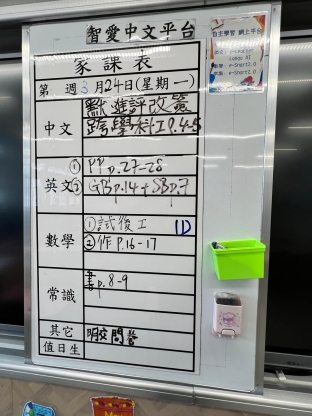 智愛中文平台
家課表
第 週 3月24日(星期一)
中文
默進評改簽
跨學科工P.4-5
英文
① PP p.27-28
② GB p.14 + SB p.7
數學
① 試後工 1D
② 作 P.16-17
常識
書p.8-9
其它
明愛問卷
值日生
自主學習 網上平台